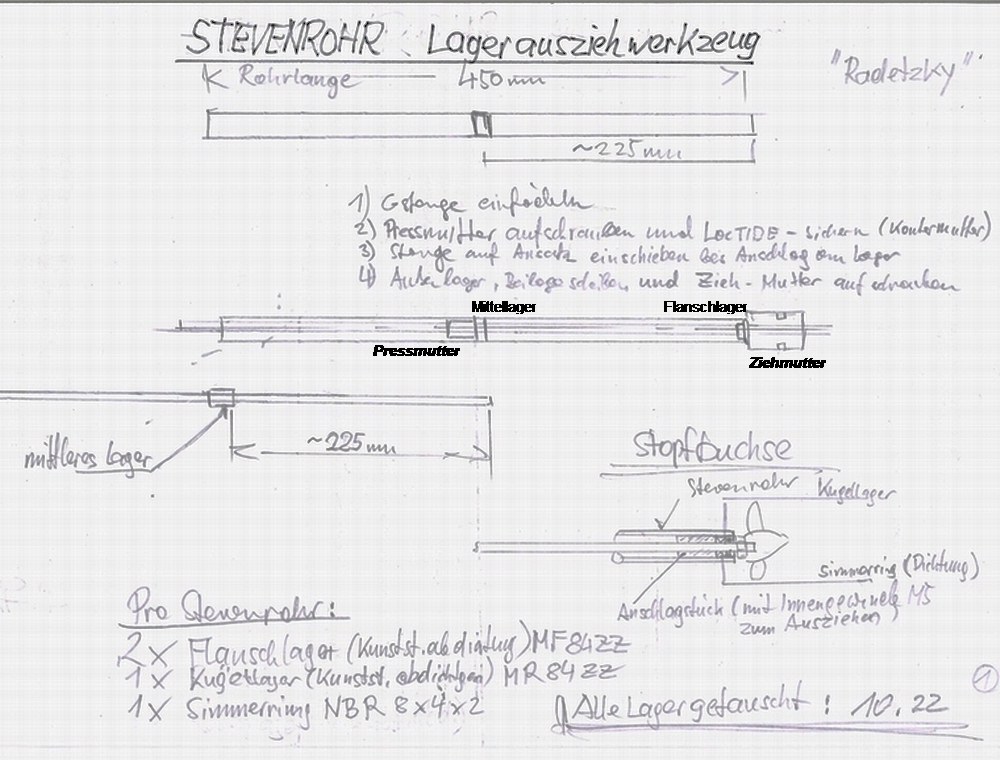 STEVENROHR Lagerausziehwerkzeug
Rohrlänge 450mm
"Radetzky"
~225mm
1) Gstange einfädeln
2) Pressmutter aufschrauben und LOCTIDE - sichern (Kontermutter)
3) Stange auf Ansatz einschieben bis Anschlag am Lager
4) Außenlager, Beilagscheiben, und Zieh-Mutter aufschrauben
Mittellager
Flanschlager
Pressmutter
Ziehmutter
~225mm
mittleres Lager
Stopfbuchse
Stevenrohr
Kugellager
Simmerring (Dichtung)
Anschlagstück (mit Innengewinde M5
zum Ausziehen)
Pro Stevenrohr:
2x Flanschlager (Kunstst. abdichtung) MF84ZZ
1x Kugellager (Kunstst. abdichtung) MR84ZZ
1x Simmerring NBR 8x4x2
Alle Lager getauscht! 10.22
1